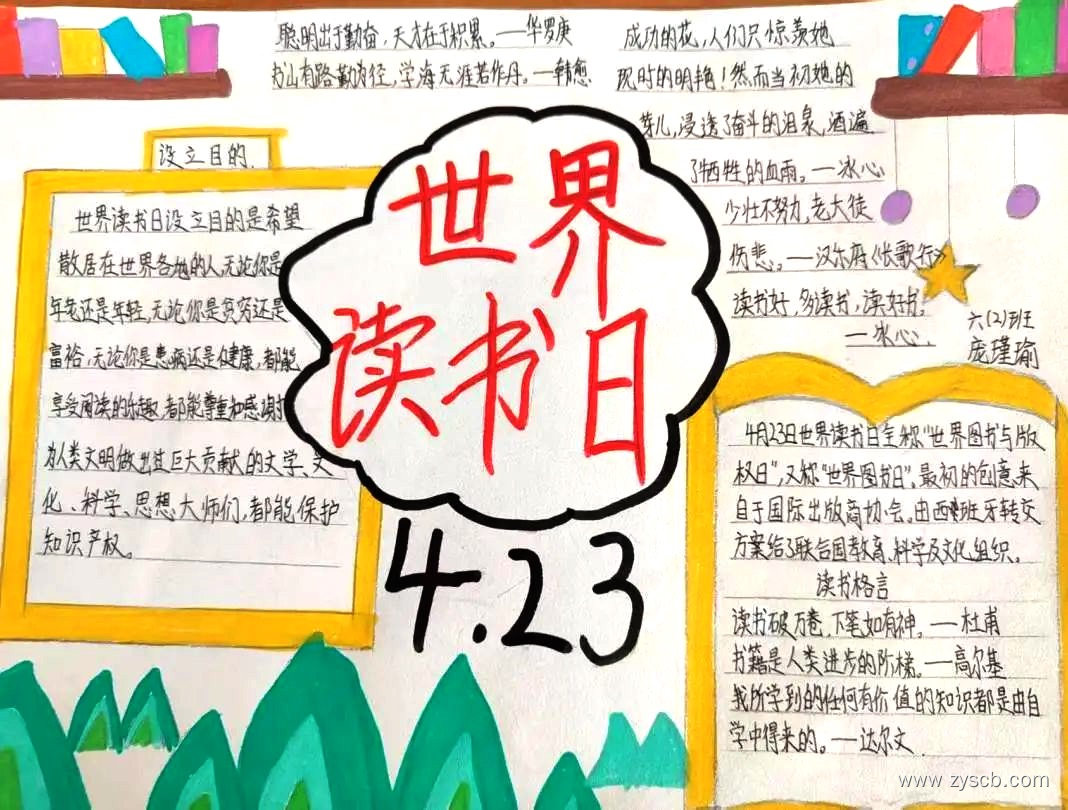 聪明出于勤奋，天才在于积累。—华罗庚
书山有路勤为径，学海无涯苦作舟。—韩愈
成功的花，人们只惊羡她
现时的明艳！然而当初她的
芽儿，浸透了奋斗的泪泉，洒遍
了牺牲的血雨。—冰心
少壮不努力，老大徒
伤悲。—汉乐府《长歌行》
读书好，多读书，读好书。
—冰心.
六(2)班
庞瑾瑜
世界
读书日
4.23
设立目的.
世界读书日设立目的是希望
散居在世界各地的人，无论你是
年老还是年轻，无论你是贫穷还是
富裕，无论你是患病还是健康，都能
享受阅读的乐趣，都能尊重和感谢
为人类文明做出过巨大贡献的文学、文
化、科学、思想大师们，都能保护
知识产权。
4月23日世界读书日全称"世界图书与版
权日"，又称"世界图书日"，最初的创意来
自于国际出版商协会。由西班牙转交
方案给了联合国教育、科学及文化组织。
读书格言
读书破万卷，下笔如有神。—杜甫
书籍是人类进步的阶梯。—高尔基
我所学到的任何有价值的知识都是由自
学中得来的。—达尔文
www.zyscb.com